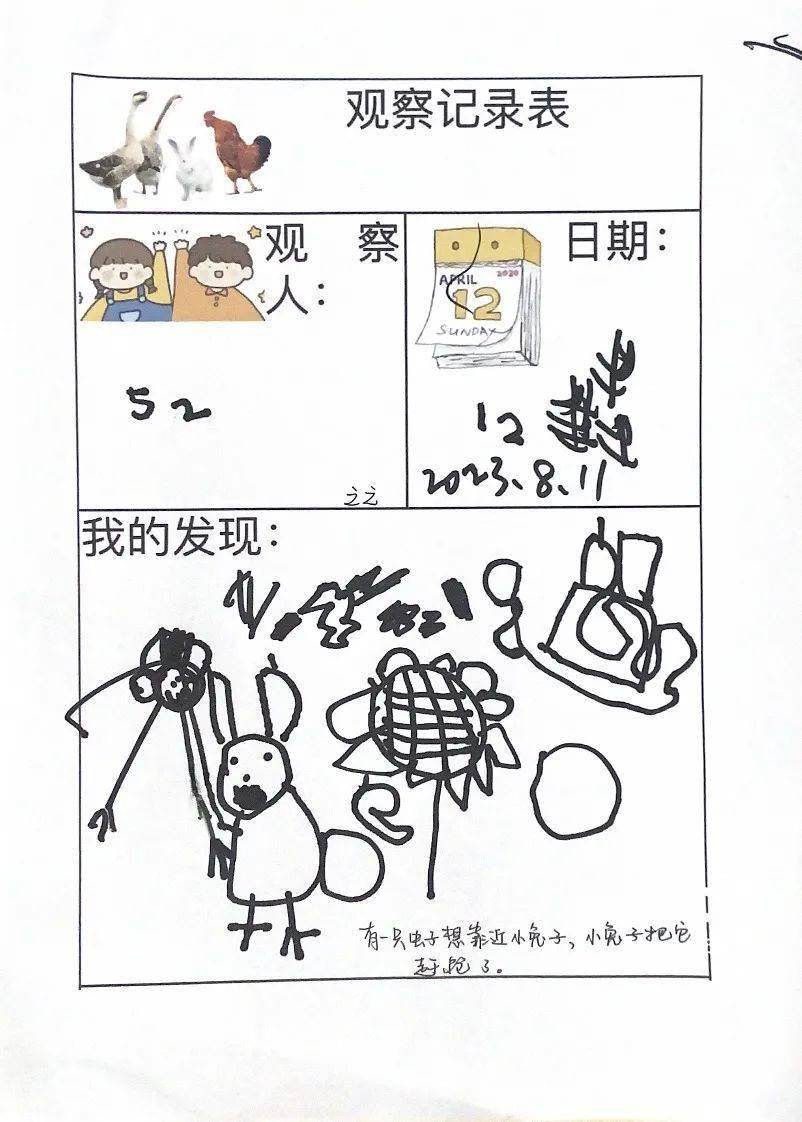 观察记录表
观 察
人：
日期：
APRIL 2020
12
SUNDAY
52
之之
12
2023.8.11
我的发现：
有一只虫子想靠近小兔子，小兔子把它
赶跑了。